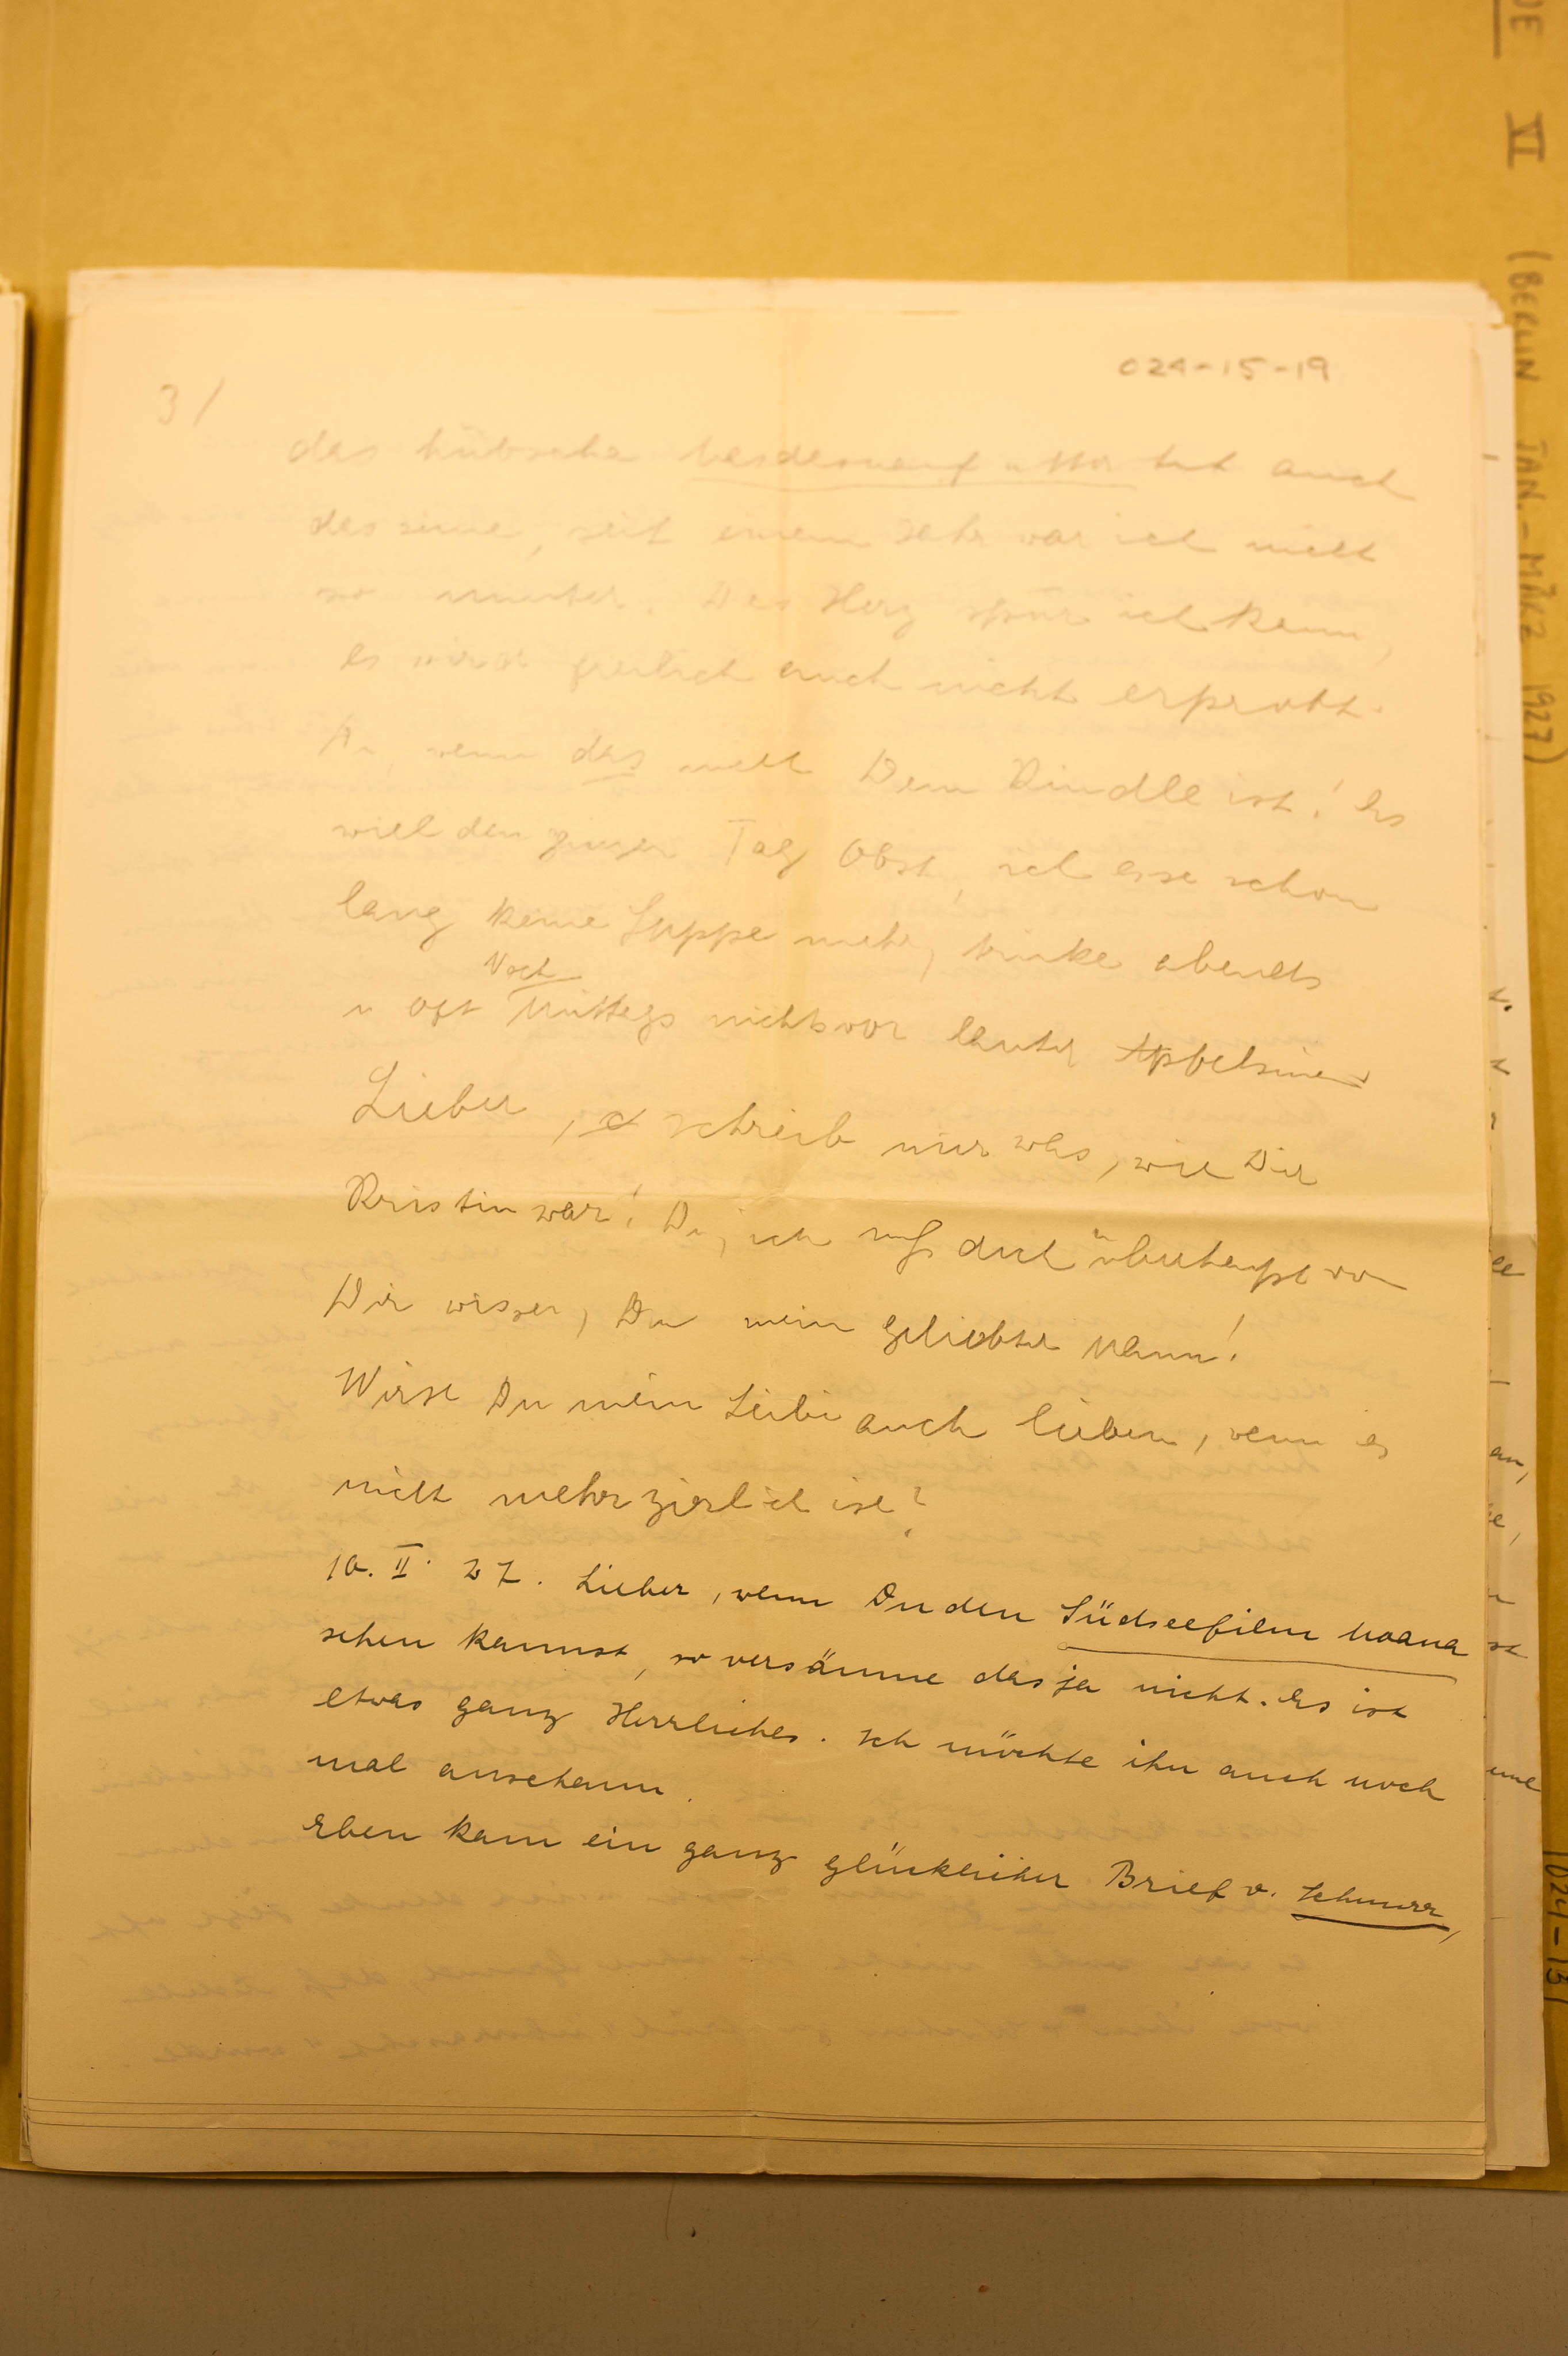 024-15-19
3/
das hübsche tut auch
das seine, seit einem Jahr war ich nicht
so munter. Das Herz spür ich kaum,
es wird freilich auch nicht erprobt.
Du, wenn das nicht Dein Kindle ist! Es
will den ganzen Tag Obst, ich esse schon
lang keine Suppe mehr, trinke abends
Nach
u oft Mittags nichts vor lauter Apfelsinen
Lieber, schreib mir was, wie Dir
Kristin war! Du, ich muß doch überhaupt von
Dir wissen, Du mein geliebter Mann!
Wirst Du mein Leibi auch lieben, wenn es
nicht mehr zierlich ist?
10. II. 27. Lieber, wenn Du den Südseefilm Moana
sehen kannst, so versäume das ja nicht. Es ist
etwas ganz Herrliches. Ich möchte ihn auch noch
mal anschaun.
Eben kam ein ganz glücklicher Brief v. Schnurr,
VI (BERLIN JAN.-MÄRZ 1927)